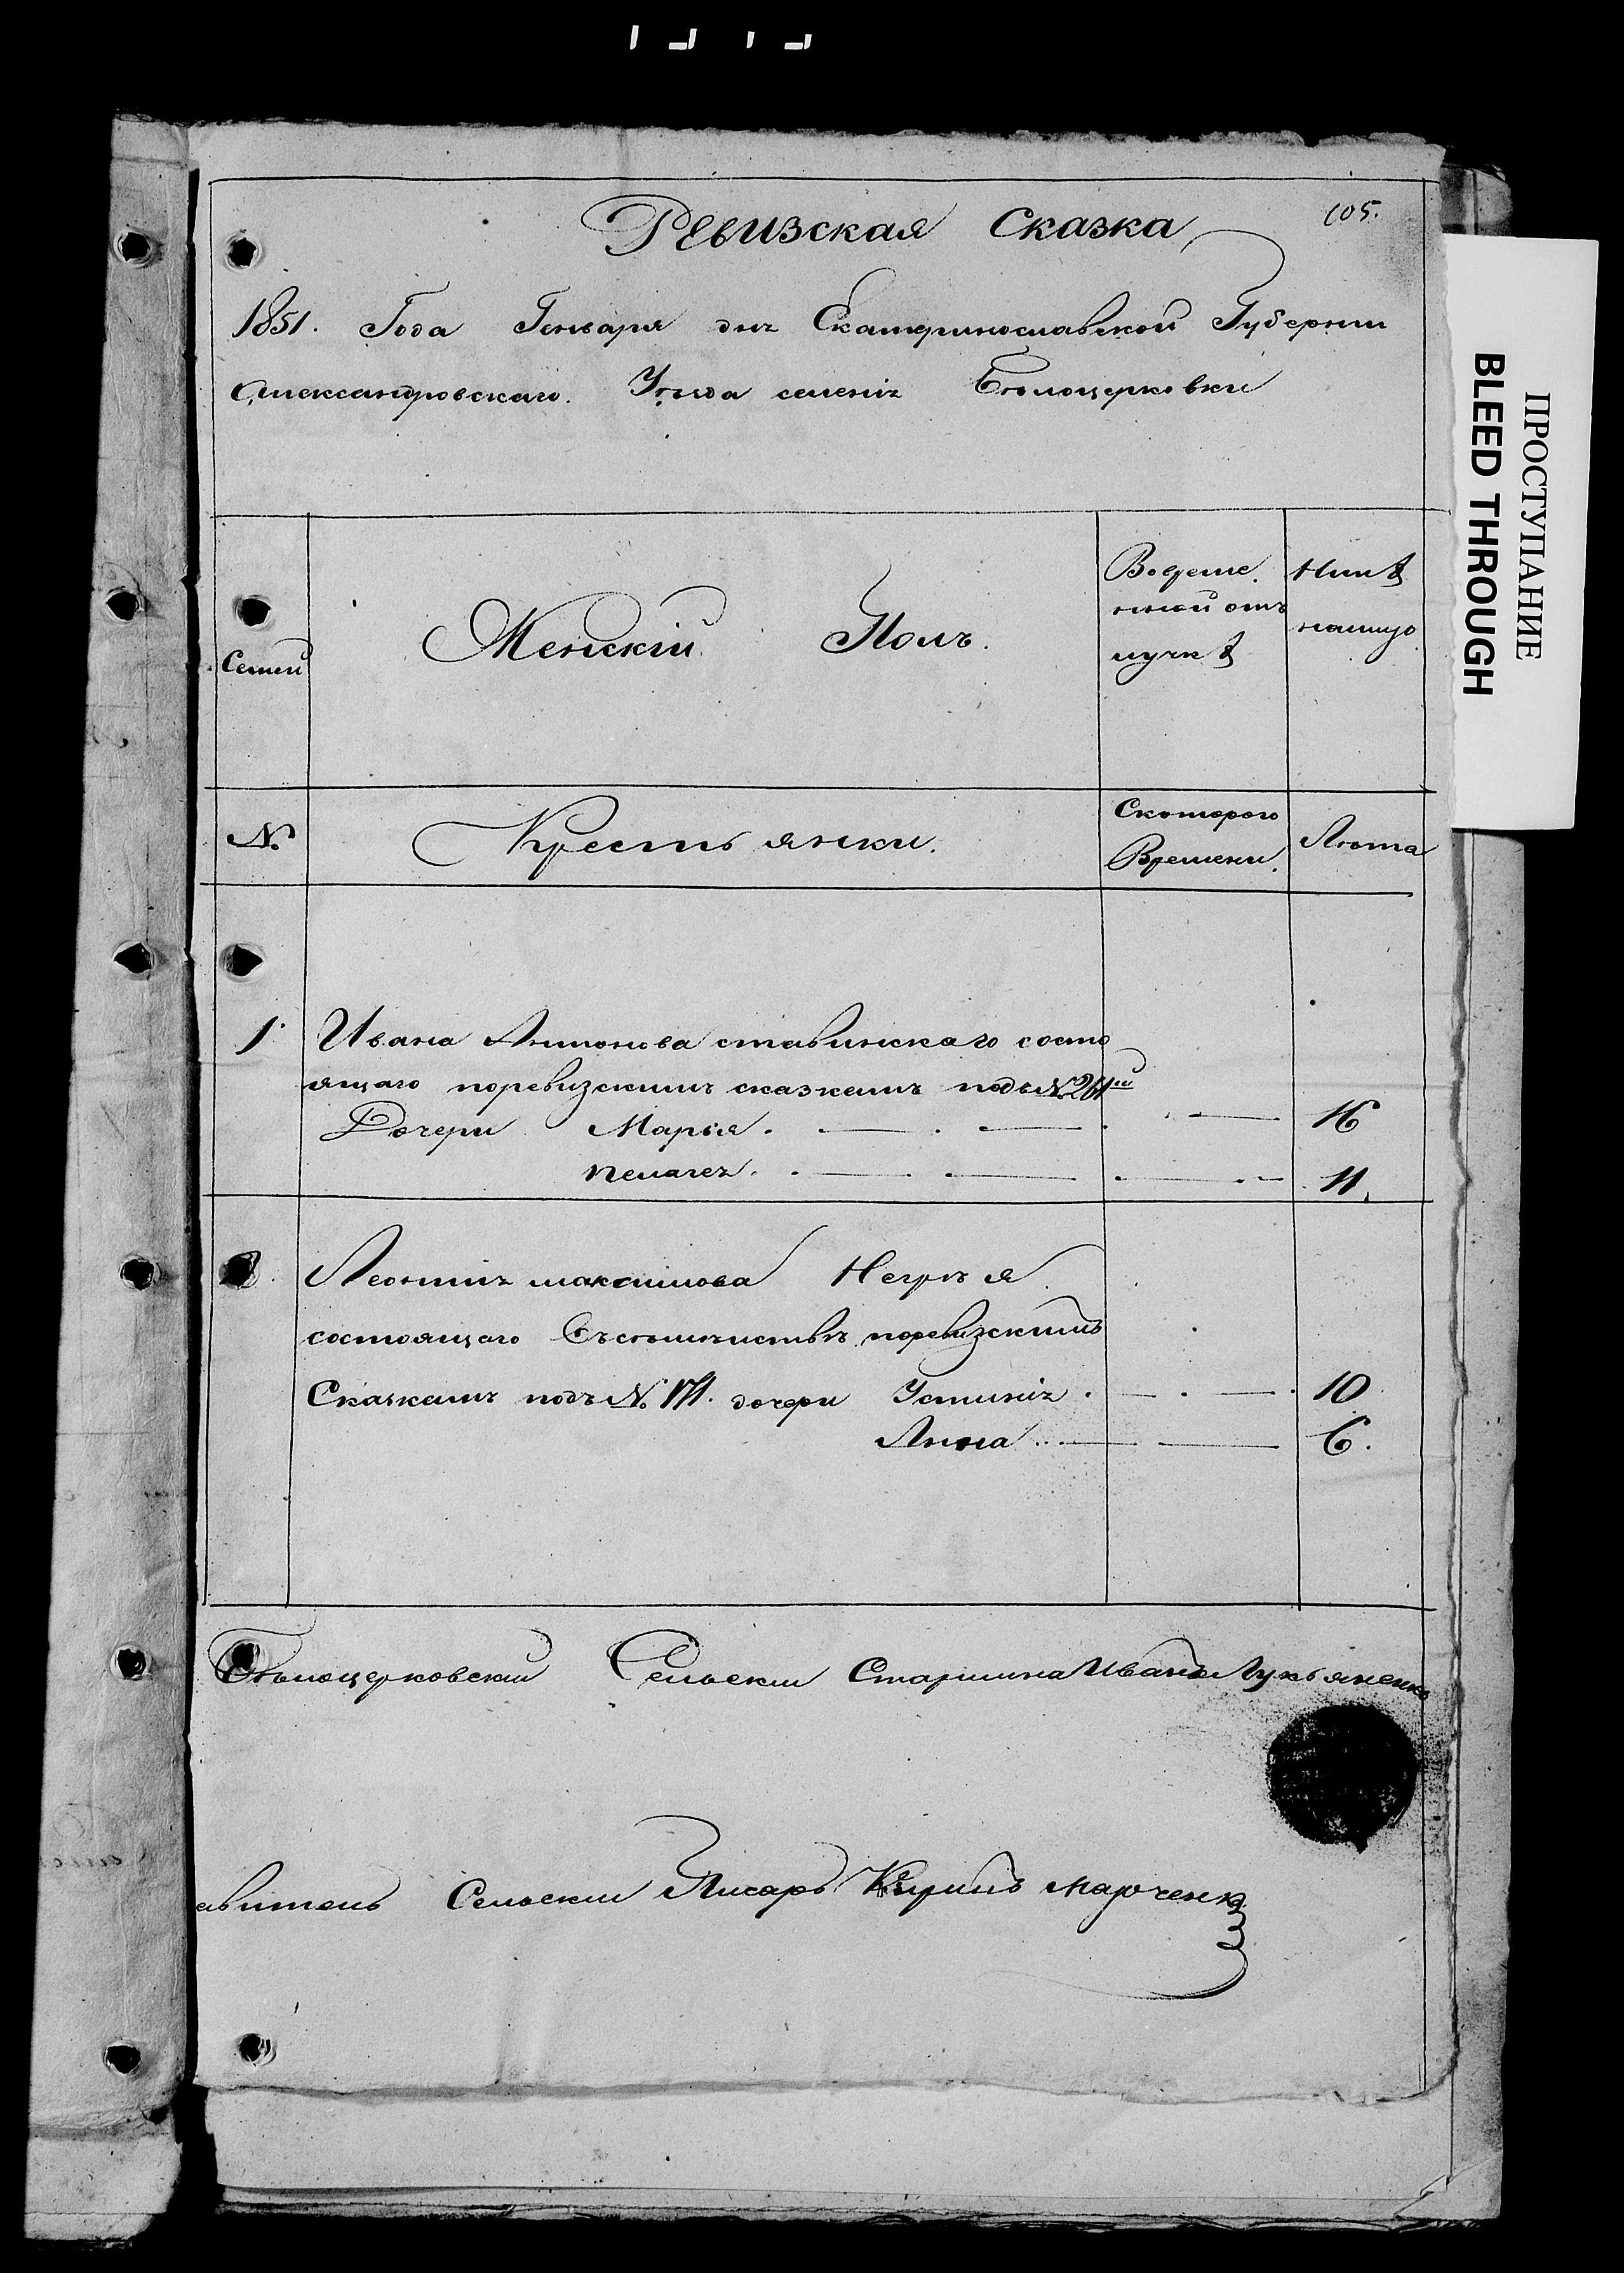 105.
Ревизская Сказка
1851. Года Генваря дня Екатеринославской Губернии
Александровскаго Уѣзда селенія Бѣлоцерковки
Семей
Женскій Полъ.
Вовреме.
нной отъ
лучкѣ
Нынѣ
налицо
№
Крестьянки.
Скоторого
Времени.
Лѣта
1. Ивана Антонова ставинскаго состо
ящаго поревизскимъ сказкамъ подъ №
Дочери Марья . — . — . — 16
Пелагея . . — — . — . - 11.
Леонтія максимова Негрѣя
состоящаго поревизскимъ
Сказкамъ подъ № 171. дочери Устинія . — . — . 10
Анна .. — — 6.
Бѣлоцерковскии Сельскии Старшина Иванъ Лукьяненко
авитель Сельскии Писарь Кирилъ марченко
ПРОСТУПАНИЕ
BLEED THROUGH